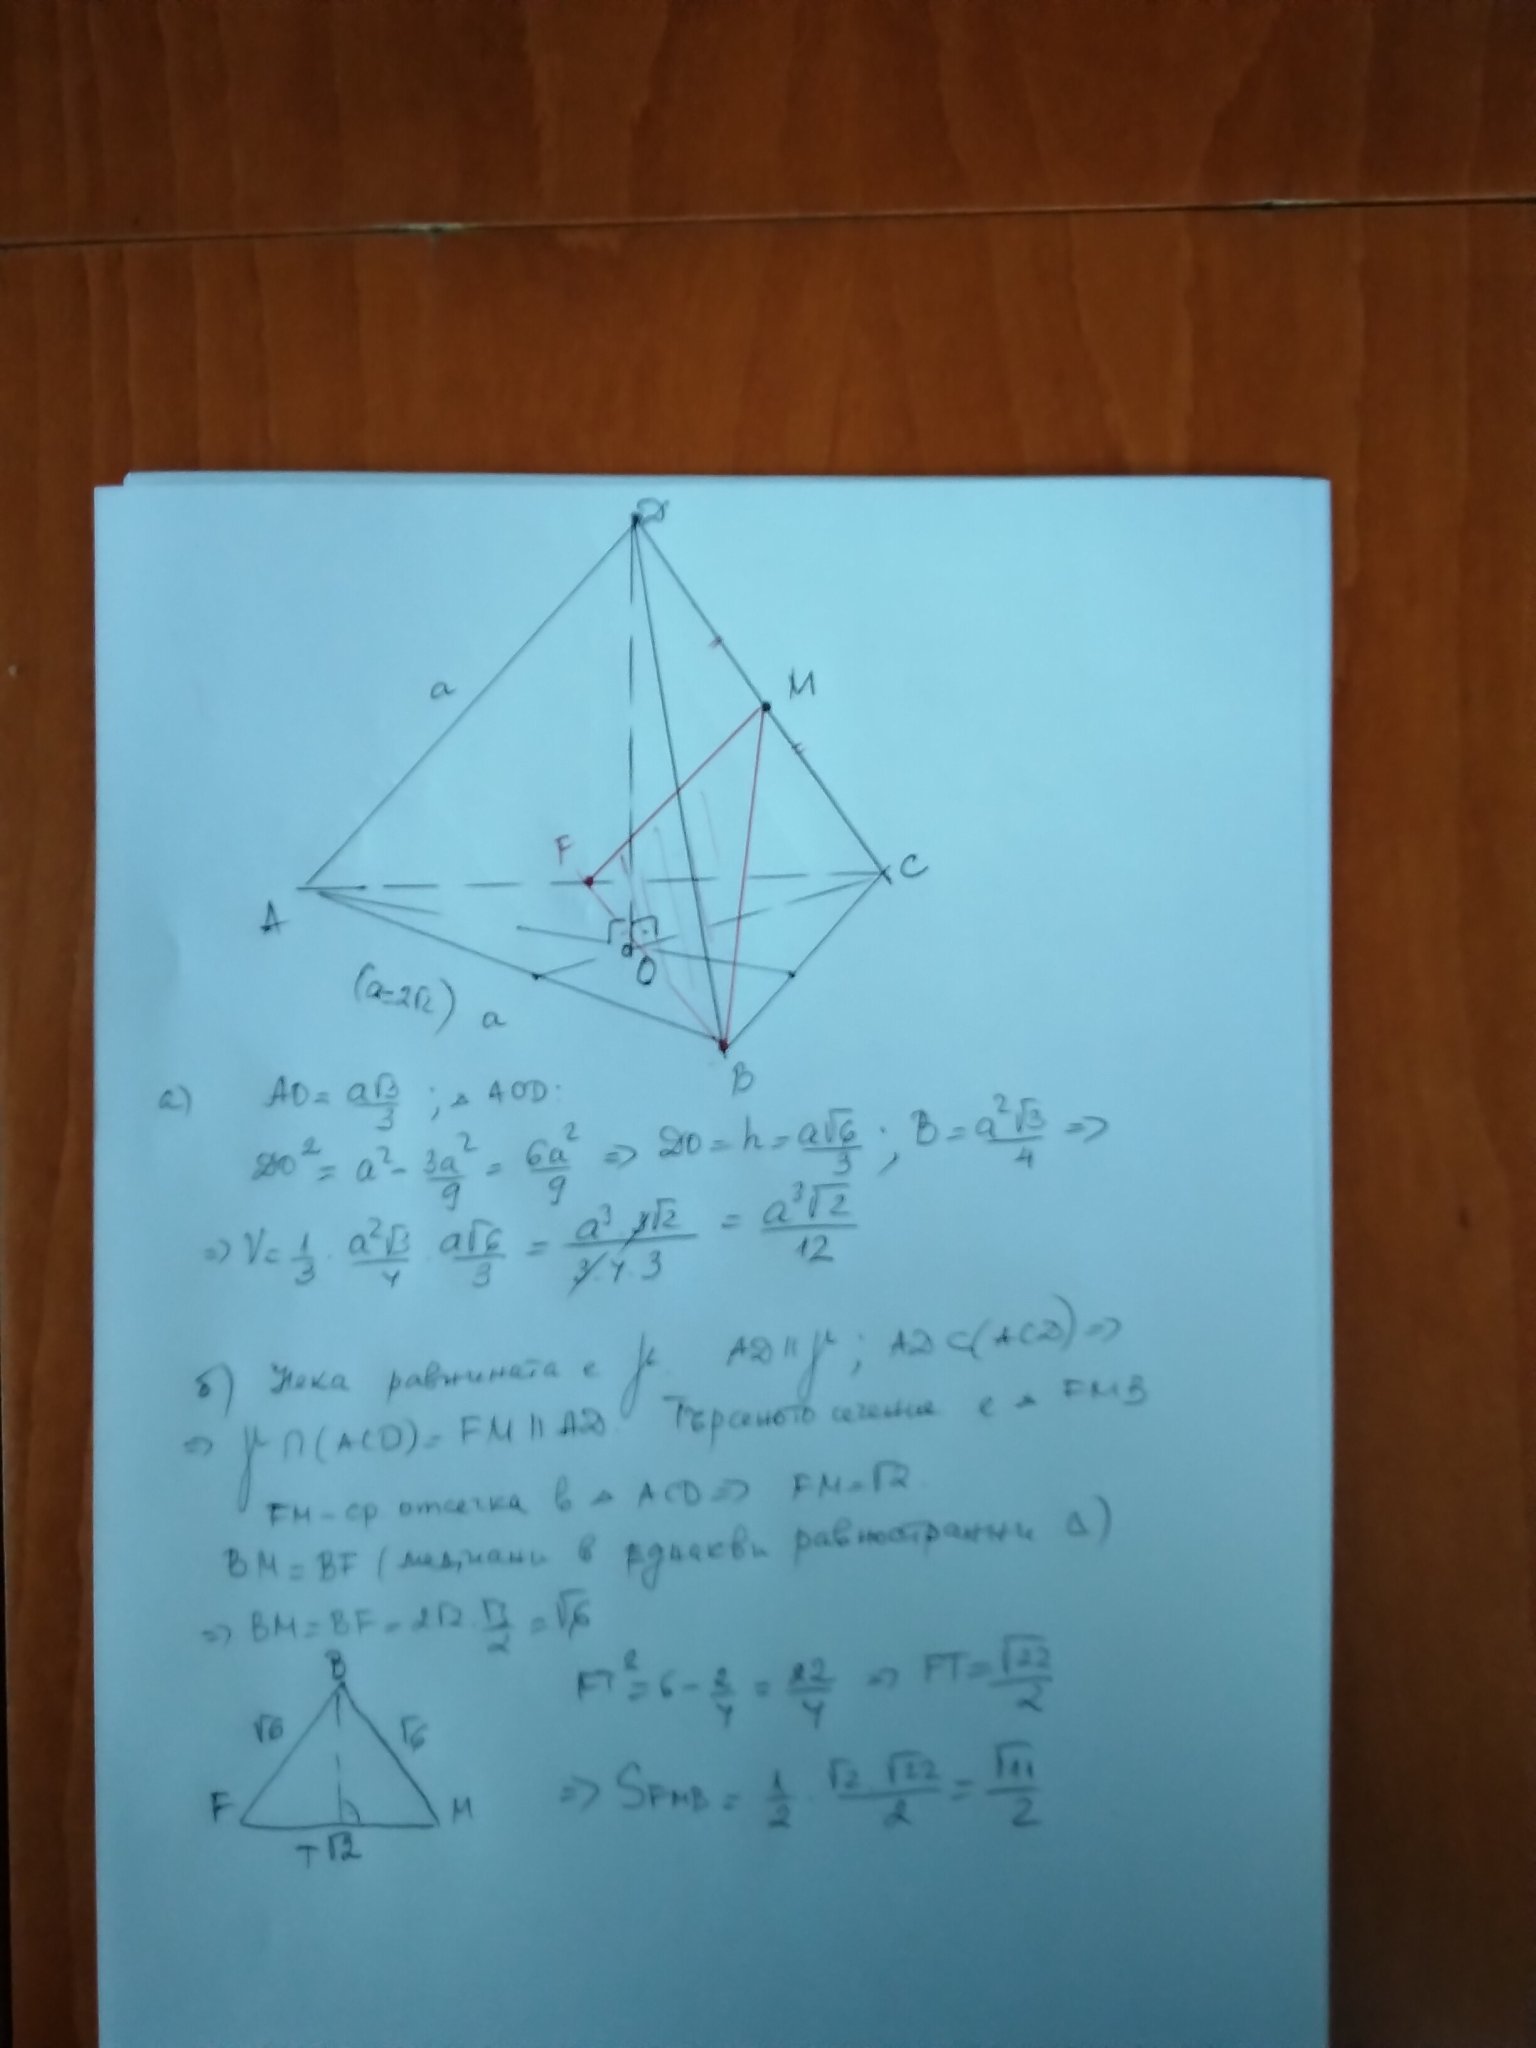 D
M
a
F
C
A
O
(a=2√2) a
B
а) AO = a√3/3 ; △ AOD:
DO² = a² - 3a²/9 = 6a²/9 => DO = h = a√6/3 ; B = a²√3/4 =>
=> V = 1/3 . a²√3/4 . a√6/3 = a³ 3√2/3.4.3 = a³√2/12
б) Нека равнината е μ. AD || μ ; AD ⊂ (ACD) =>
=> μ ∩ (ACD) = FM || AD. Търсеното сечение е △ FMB
FM - ср отсечка в △ ACD => FM = √2.
BM = BF (медиани в еднакви равностранни △)
=> BM = BF = 2√2 . √3/2 = √6
B
√6 √6
F M
T √2
FT² = 6 - 2/4 = 22/4 => FT = √22/2
=> S FMB = 1/2 . √2 . √22/2 = √11/2